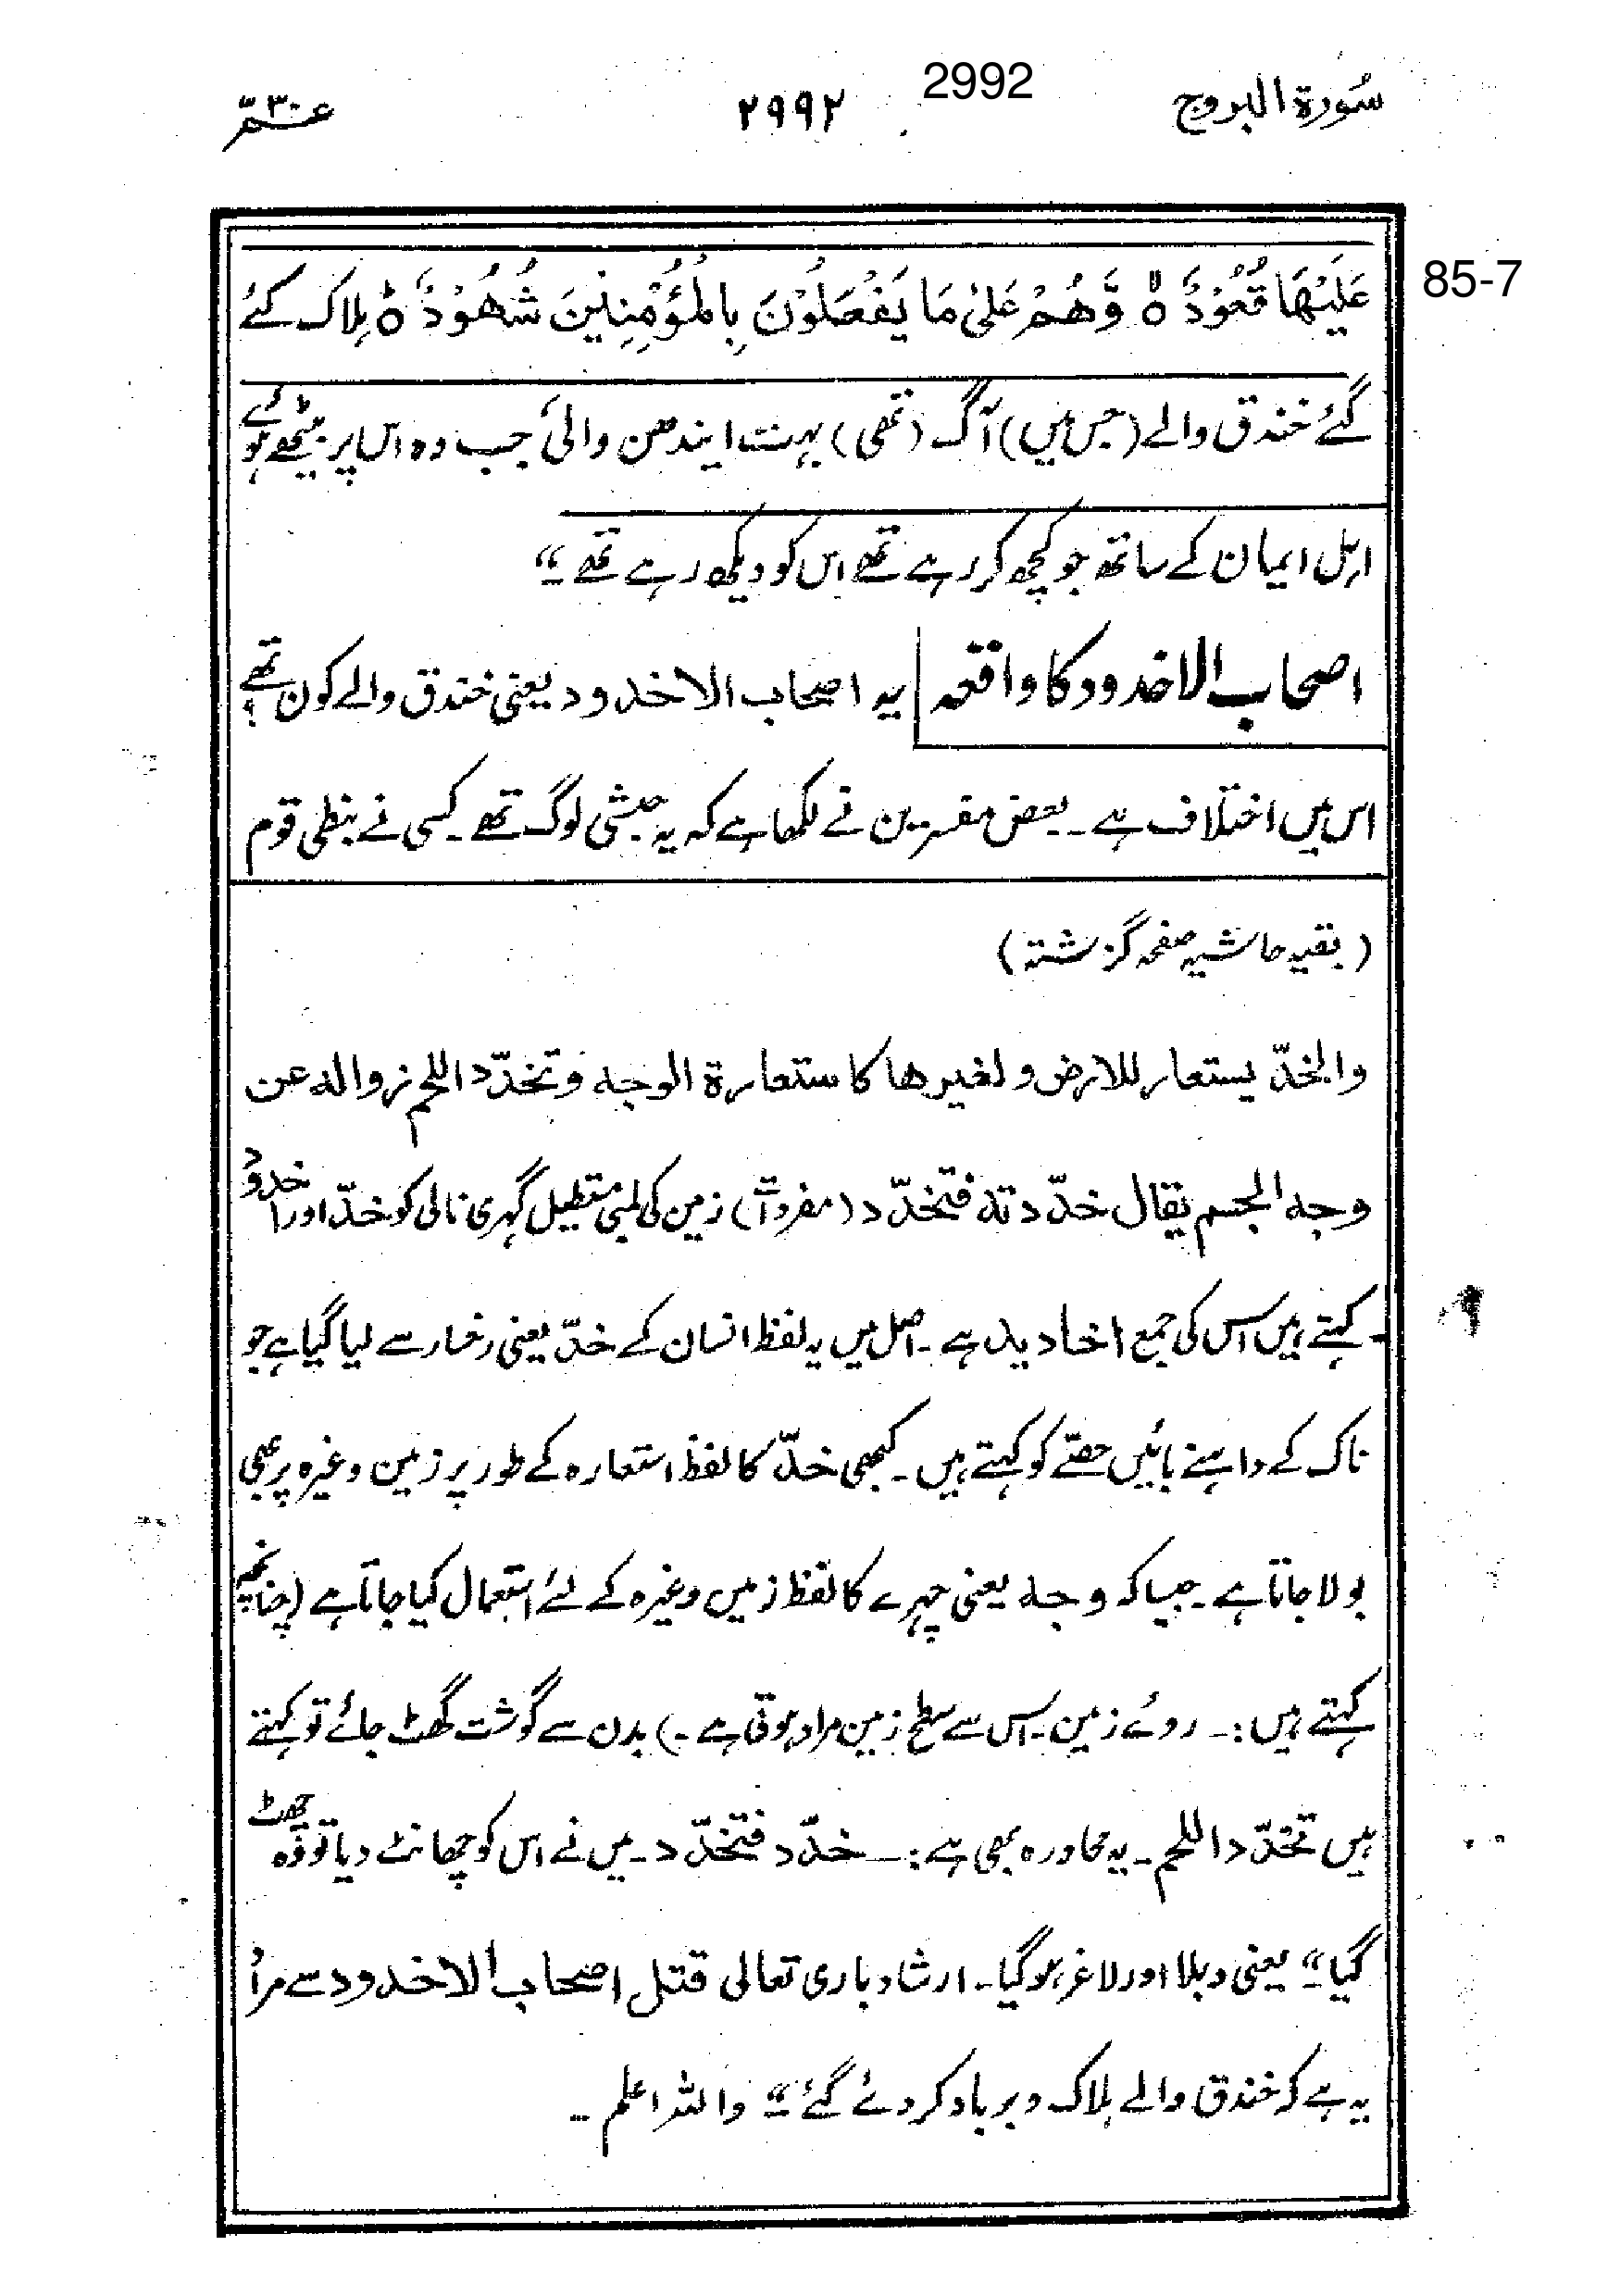 سُورة البروج ۲۹۹۲ 2992 عـمّ ۳۰
عَلَيْهَا قُعُوْدٌ ۝ وَّهُمْ عَلىٰ مَا يَفْعَلُوْنَ بِالْمُؤْمِنِيْنَ شُهُوْدٌ ۝ ہلاک کئے 85-7
گئے خندق والے (جس میں) آگ (تھی) بہت ایندھن والی جب وہ اس پر بیٹھے ہوئے
اہل ایمان کے ساتھ جو کچھ کر رہے تھے اس کو دیکھ رہے تھے"۔
اصحاب الاخدود کا واقعہ یہ اصحاب الاخدود یعنی خندق والے کون تھے؟
اس میں اختلاف ہے۔ بعض مفسرین نے لکھا ہے کہ یہ حبشی لوگ تھے۔ کسی نے نبطی قوم
(بقیہ حاشیہ صفحہ گزشتہ)
والخدّ يستعار للارض ولغيرها كاستعارة الوجه وتخدّد اللحم زواله عن
وجه الجسم يقال خدّدته فتخدّد (مفردات) زمین کی لمبی مستطیل گہری نالی کو خدّ اور اخدود
کہتے ہیں اس کی جمع اخادید ہے۔ اصل میں یہ لفظ انسان کے خدّ یعنی رخسار سے لیا گیا ہے جو
ناک کے داہنے بائیں حصّے کو کہتے ہیں۔ کبھی خدّ کا لفظ استعارہ کے طور پر زمین وغیرہ پر بھی
بولا جاتا ہے۔ جیسا کہ وجہ یعنی چہرے کا لفظ زمین وغیرہ کے لئے استعمال کیا جاتا ہے (چنانچہ
کہتے ہیں:۔ روئے زمین۔ اس سے سطح زمین مراد ہوتی ہے۔) بدن سے گوشت گھٹ جائے تو کہتے
ہیں تخدّد اللحم۔ یہ محاورہ بھی ہے:۔ خدّد فتخدّد۔ میں نے اس کو چھانٹ دیا تو وہ چھٹ
گیا"۔ یعنی دبلا اور لاغر ہو گیا۔ ارشاد باری تعالی قتل اصحاب الاخدود سے مراد
یہ ہے کہ خندق والے ہلاک و برباد کر دئے گئے"۔ واللہ اعلم۔